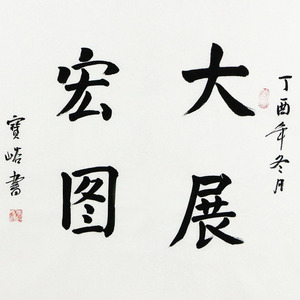 丁酉年冬月
大展
宏图
寶書